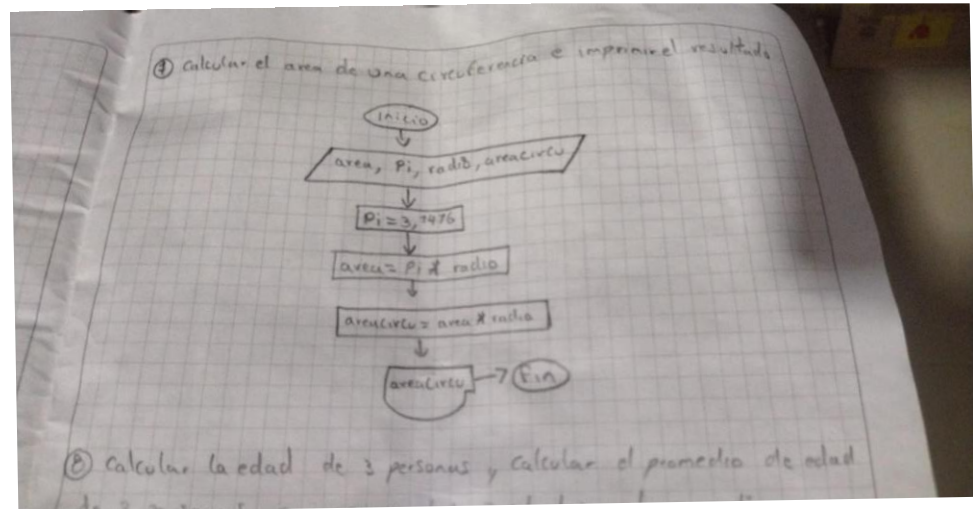 ⑦ calcular el area de una circuferencia e imprimir el resultado
inicio
area, Pi, radio, areacircu
Pi = 3,1416
area = Pi * radio
areacircu = area * radio
areacircu
Fin
⑧ calcular la edad de 3 personas y calcular el promedio de edad